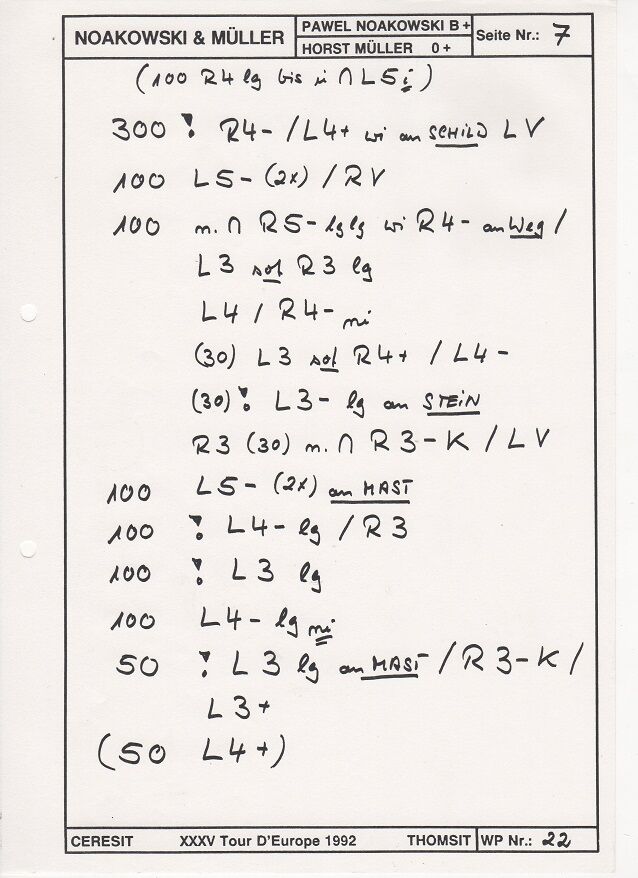 NOAKOWSKI & MÜLLER
PAWEL NOAKOWSKI B+
HORST MÜLLER 0+
Seite Nr.: 7
(100 R4 lg bis ü ∩ L5 i)
300 ! R4- / L4+ wi an SCHILD LV
100 L5- (2x) / RV
100 m. ∩ R5- lglg wi R4- an Weg /
L3 sof R3 lg
L4 / R4- ni
(30) L3 sof R4+ / L4-
(30) ! L3- lg an STEIN
R3 (30) m. ∩ R3-K / LV
100 L5- (2x) an MAST
100 ! L4- lg / R3
100 ! L3 lg
100 L4- lg ni
50 ! L3 lg an MAST / R3-K /
L3+
(50 L4+)
CERESIT XXXV Tour D'Europe 1992 THOMSIT WP Nr.: 22